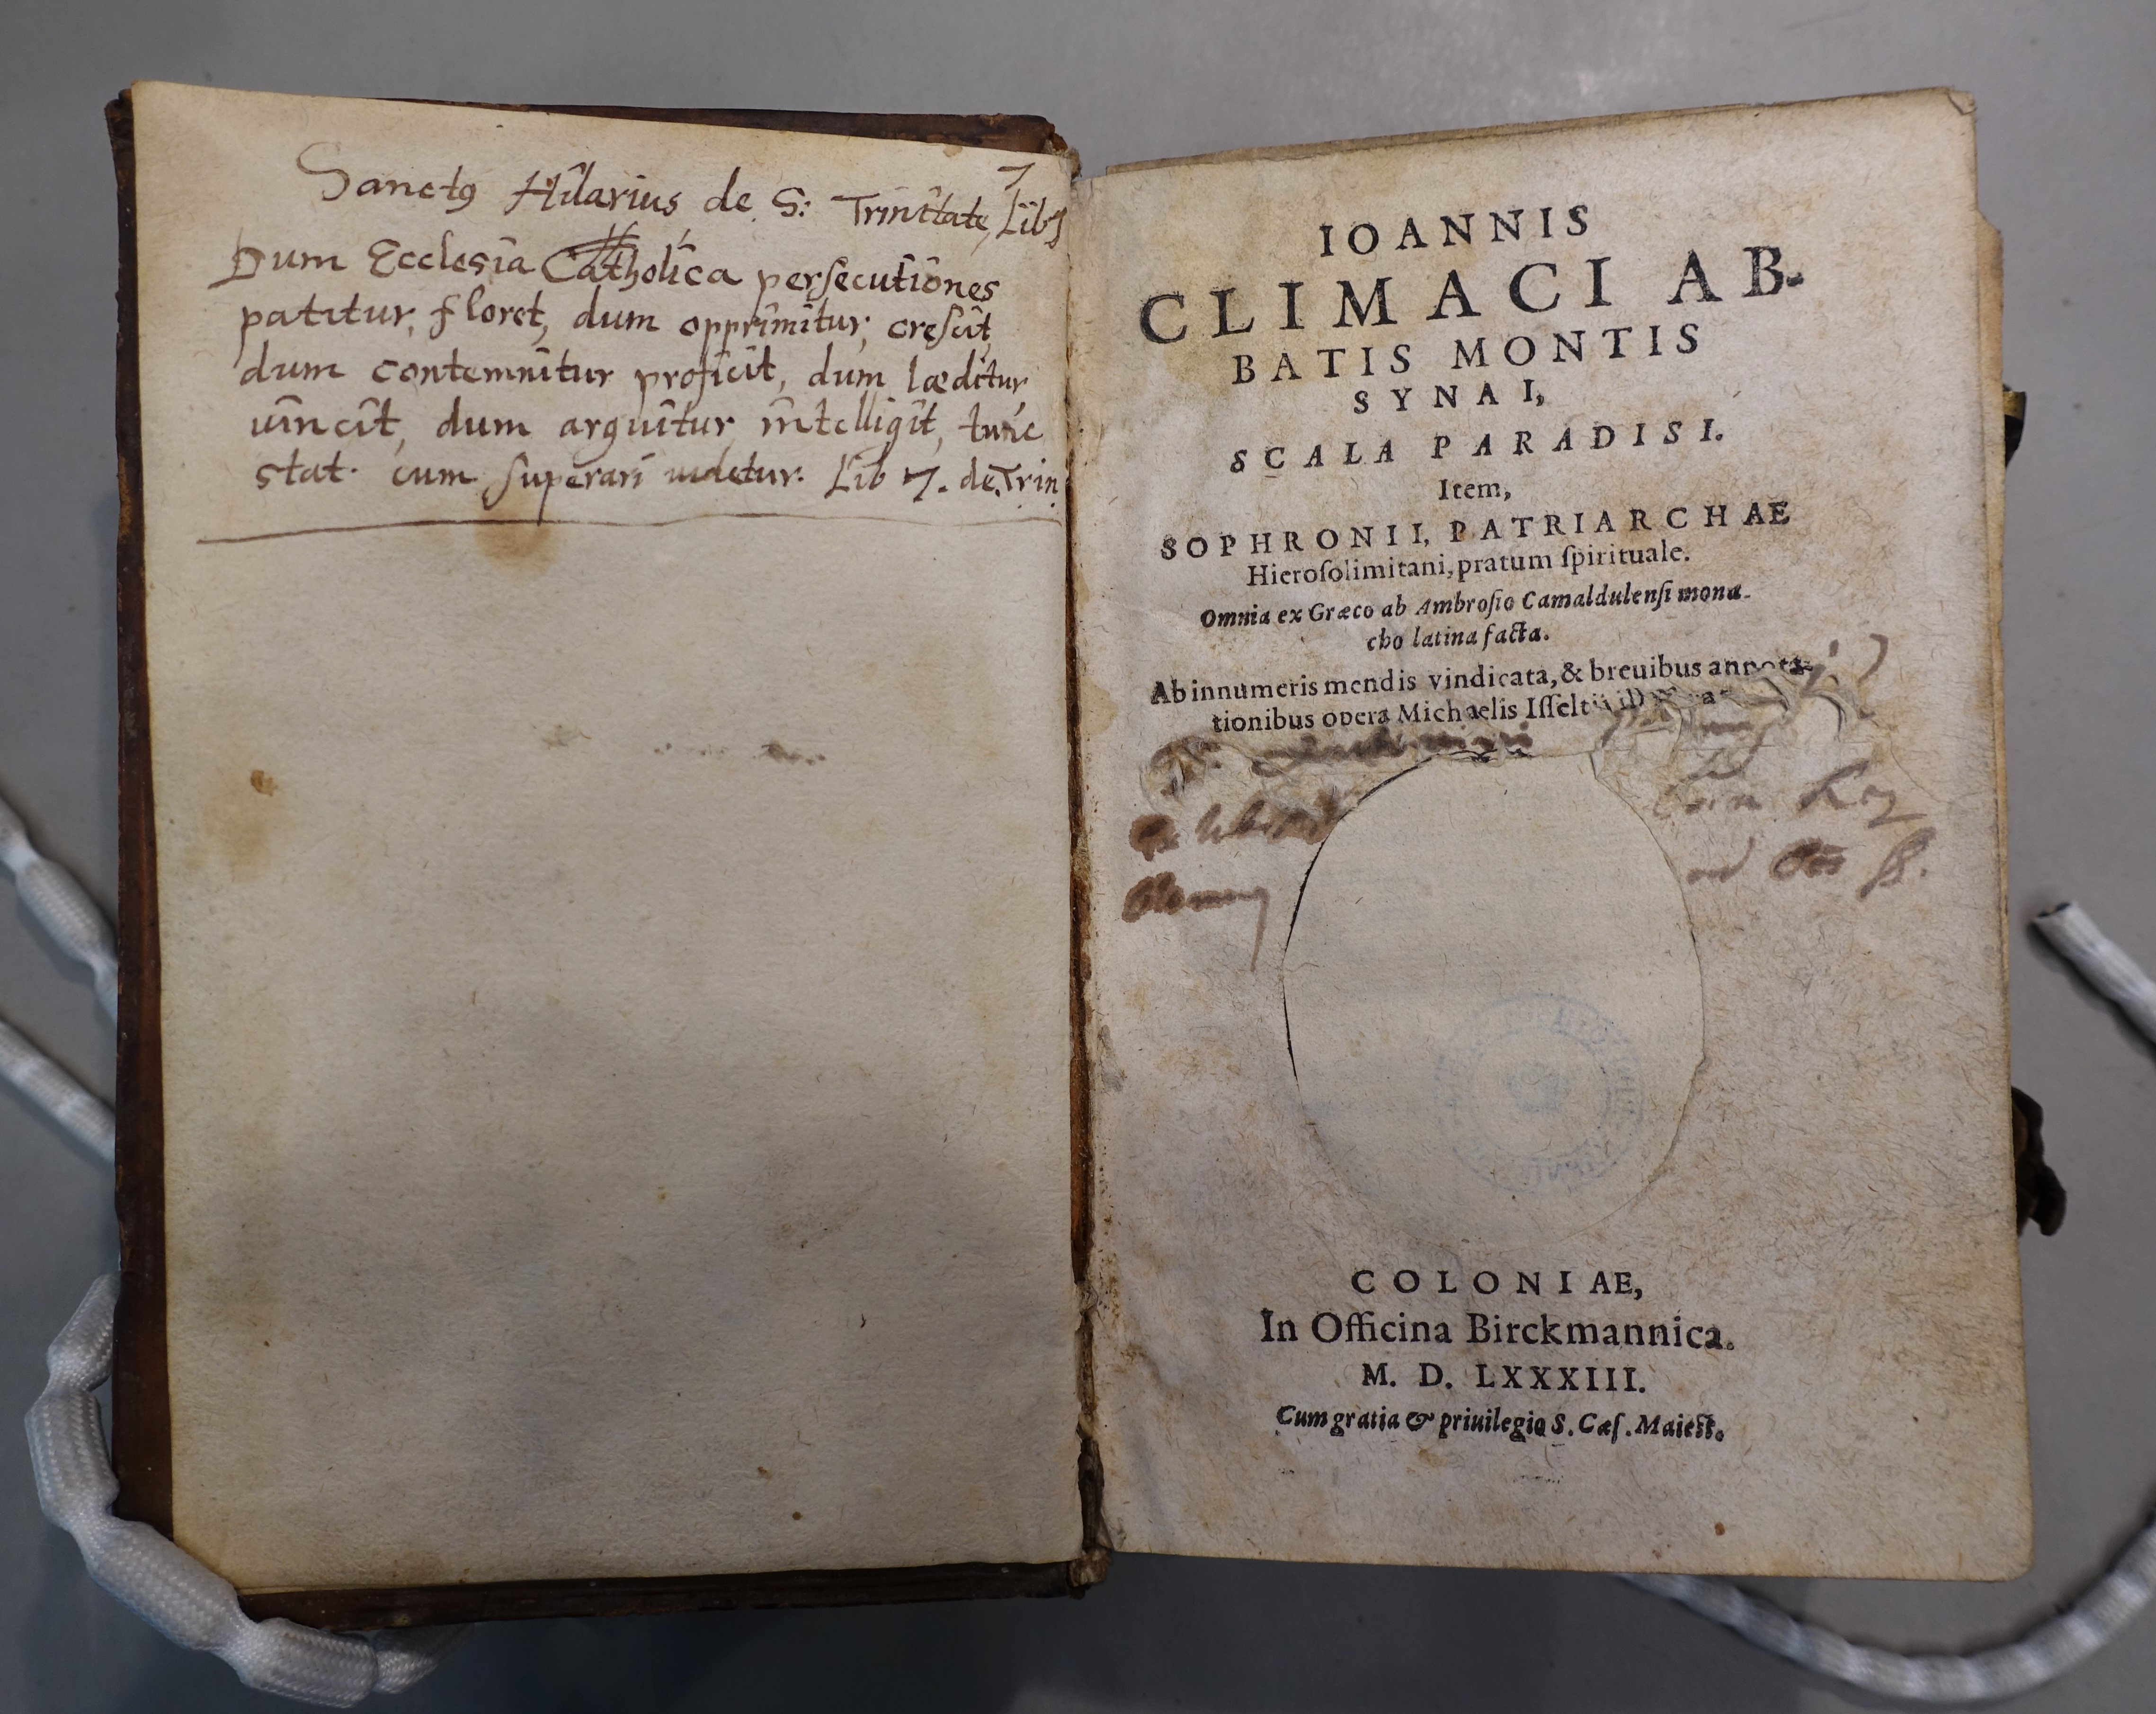 Sanctꝰ Hilarius de S: Trinitate, Lib 7
Dum Ecclesia Catholica perſecutiones
patitur, floret, dum opprimitur, creſcit,
dum contemnitur proficit, dum læditur
uincit, dum arguitur intelligit, tunc
stat cum ſuperari uidetur. Lib 7. de Trin.
IOANNIS
CLIMACI AB-
BATIS MONTIS
SYNAI,
SCALA PARADISI.
Item,
SOPHRONII, PATRIARCHAE
Hieroſolimitani, pratum ſpirituale.
Omnia ex Græco ab Ambroſio Camaldulenſi mona-
cho latina facta.
Ab innumeris mendis vindicata, & breuibus annota-
tionibus opera Michaelis Iſſeltii
COLONIAE,
In Officina Birckmannica.
M. D. LXXXIII.
Cum gratia & priuilegio S. Cæſ. Maieſt.